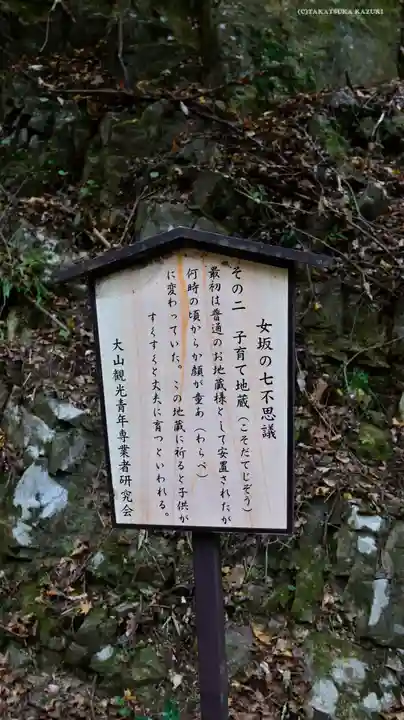 (C)TAKATSUKA KAZUKI
女坂の七不思議
その二 子育て地蔵(こそだてじぞう)
最初は普通のお地蔵様として安置されたが
、何時の頃からか顔が童あ(わらべ)
に変わっていた。この地蔵に祈ると子供が
すくすくと丈夫に育つといわれる。
大山観光青年専業者研究会